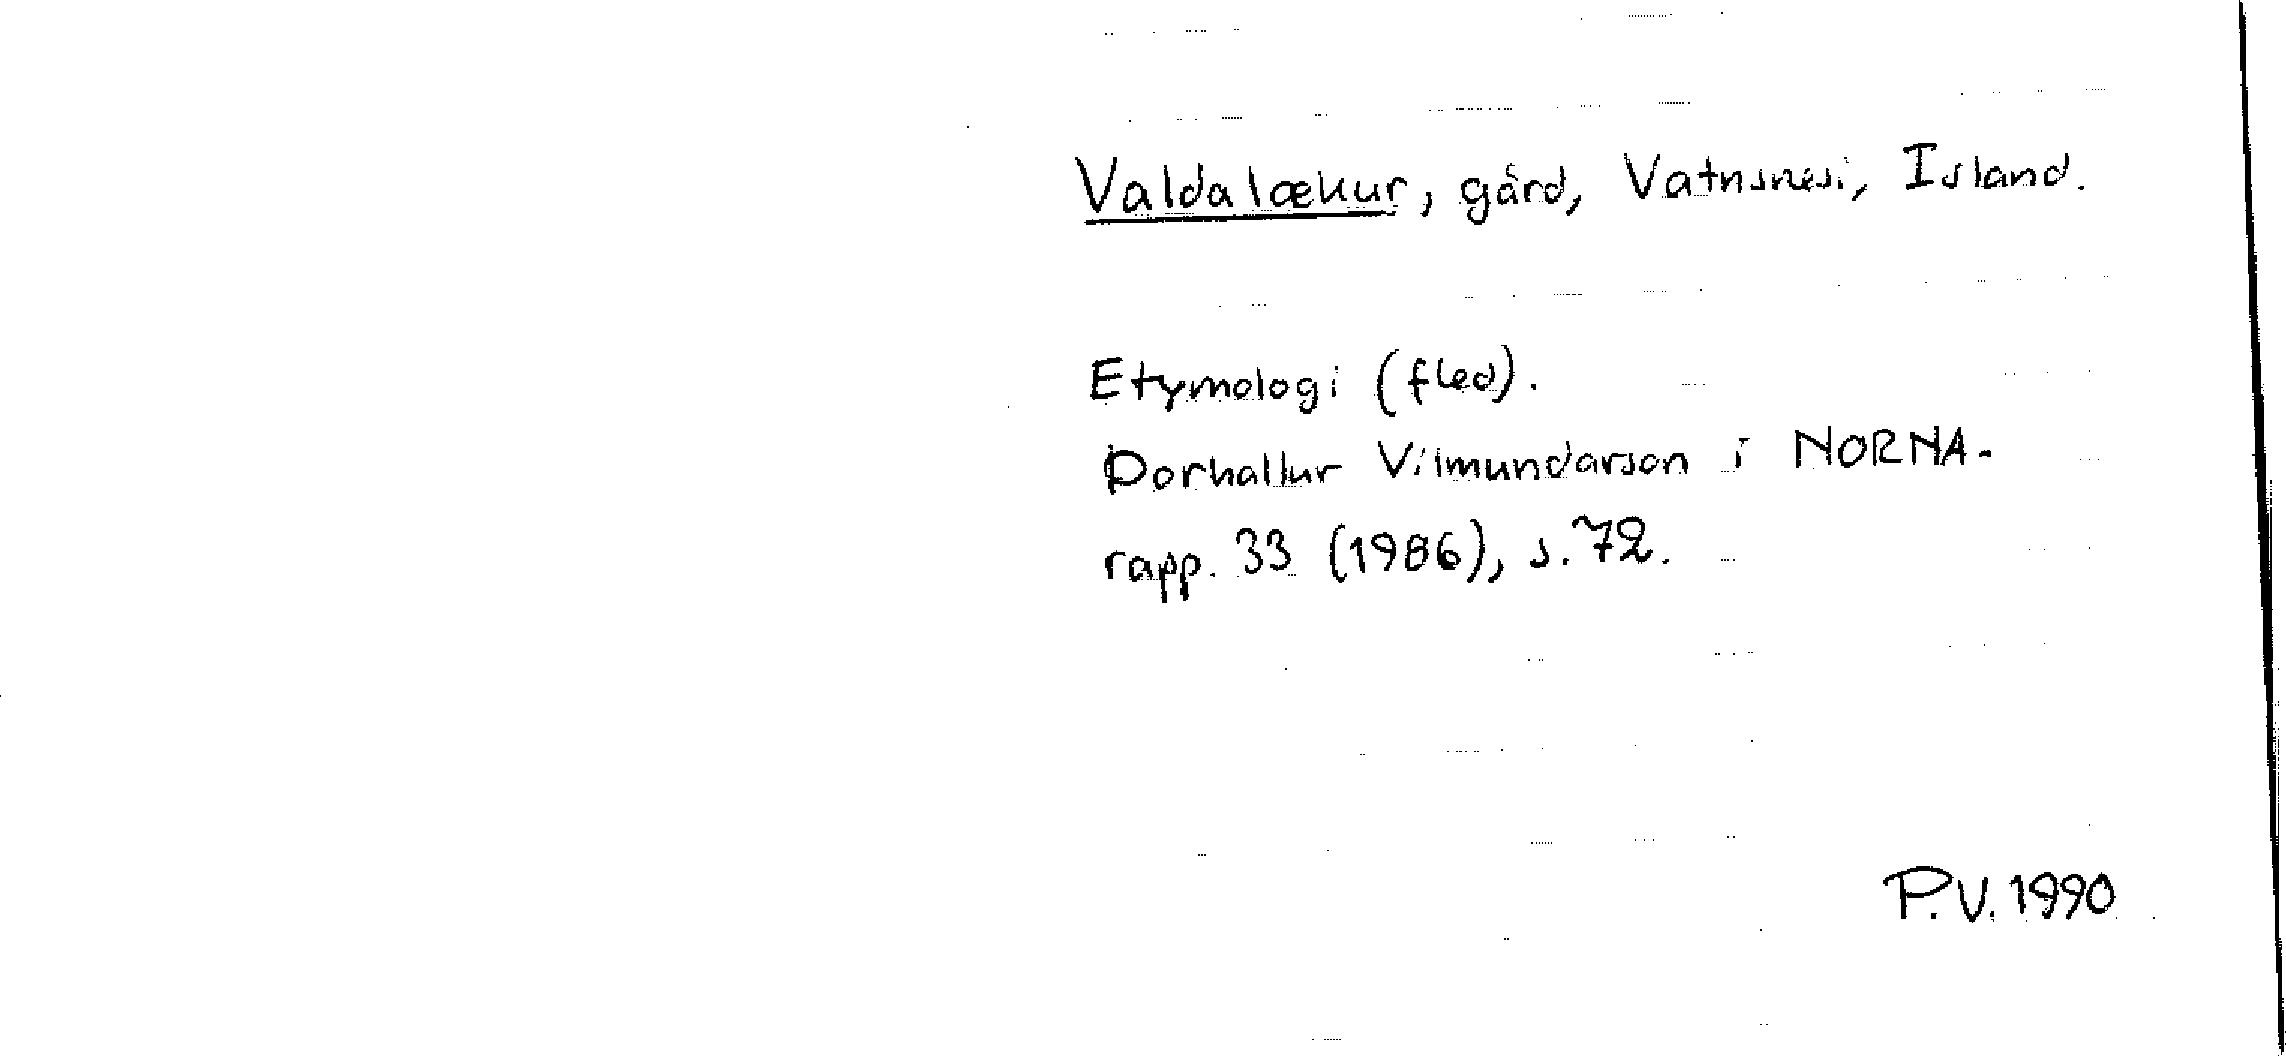 Valdalækur, gård, Vatnsnesi, Island.
Etymologi (fled).
Þorhallur Vilmundarson i NORNA-
rapp. 33 (1986), s. 72.
P.V. 1990